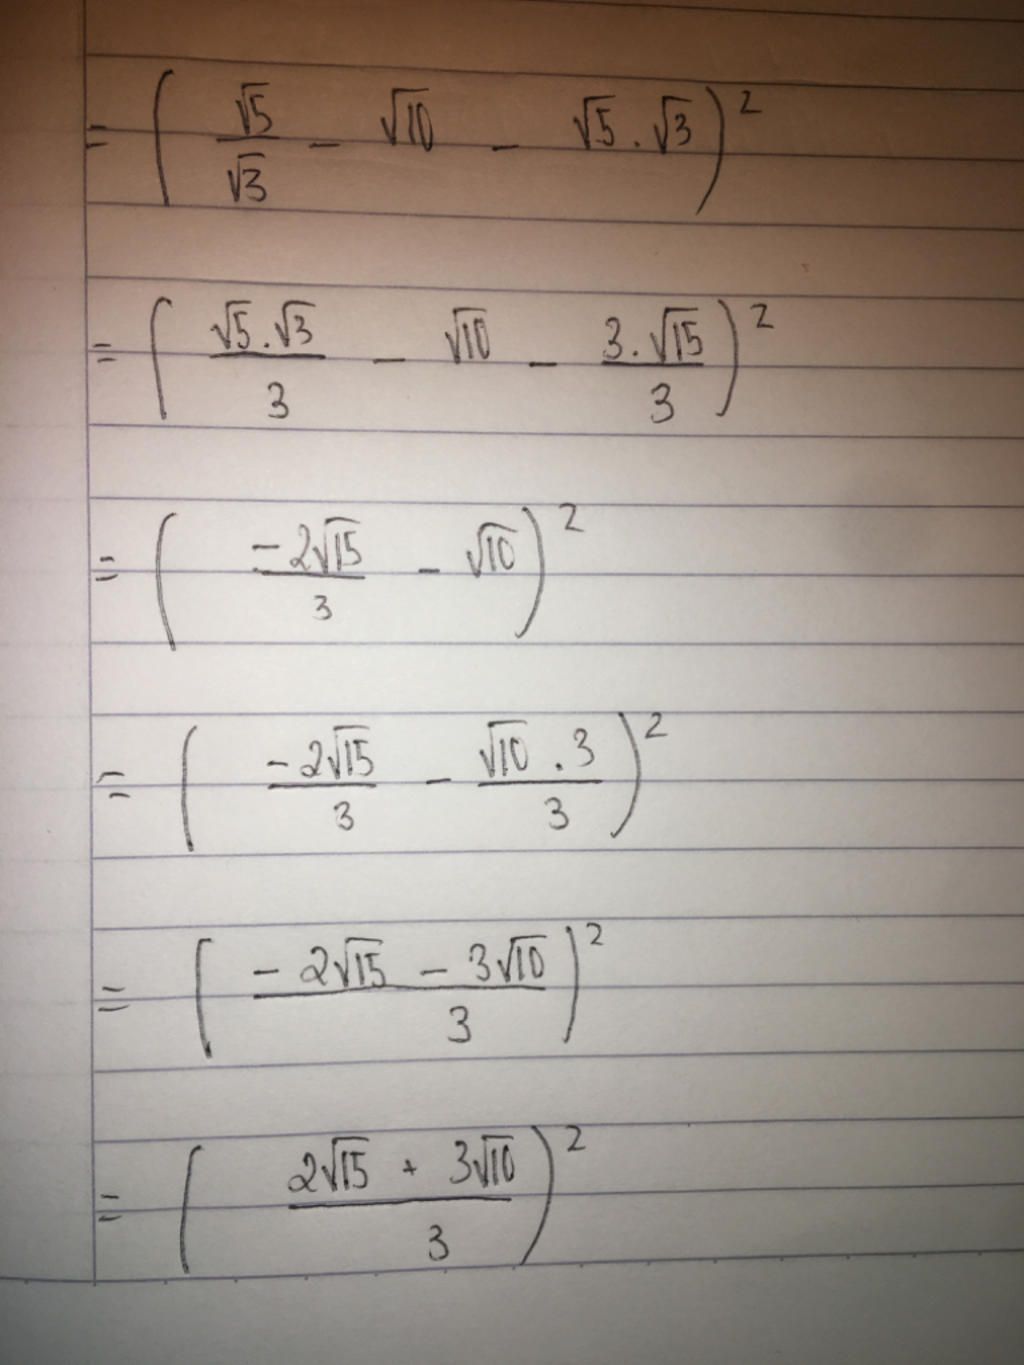 = ( √5/√3 - √10 - √5 . √3 )²
= ( √5 . √3/3 - √10 - 3 . √15/3 )²
= ( -2√15/3 - √10 )²
= ( -2√15/3 - √10 . 3/3 )²
= ( (-2√15 - 3√10)/3 )²
= ( (2√15 + 3√10)/3 )²